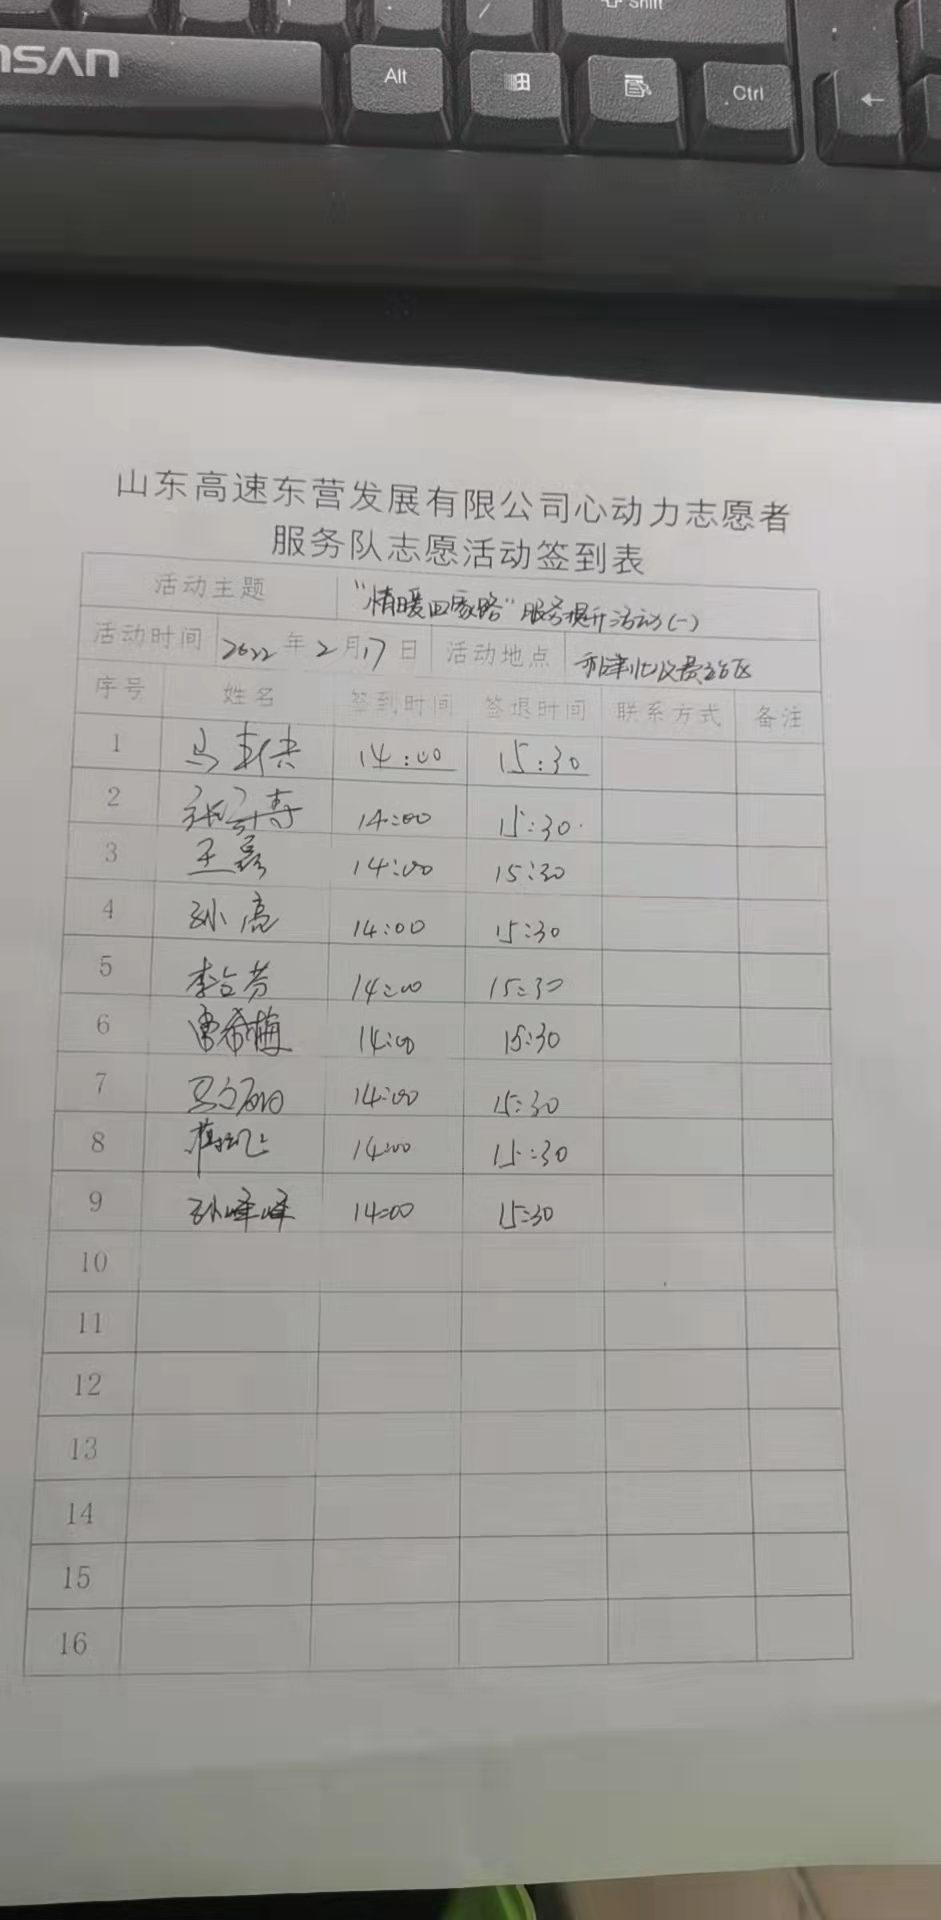 Shift
NSAN
Alt
Ctrl
←
山东高速东营发展有限公司心动力志愿者
服务队志愿活动签到表
活动主题 "情暖回家路"服务提升活动(一)
活动时间 2022年2月17日 活动地点 利津北收费站区
序号 姓名 签到时间 签退时间 联系方式 备注
1 马 14:00 15:30
2 14:00 15:30
3 王磊 14:00 15:30
4 孙亮 14:00 15:30
5 李 芳 14:00 15:30
6 曹希梅 14:00 15:30
7 14:00 15:30
8 14:00 15:30
9 孙峰峰 14:00 15:30
10
11
12
13
14
15
16